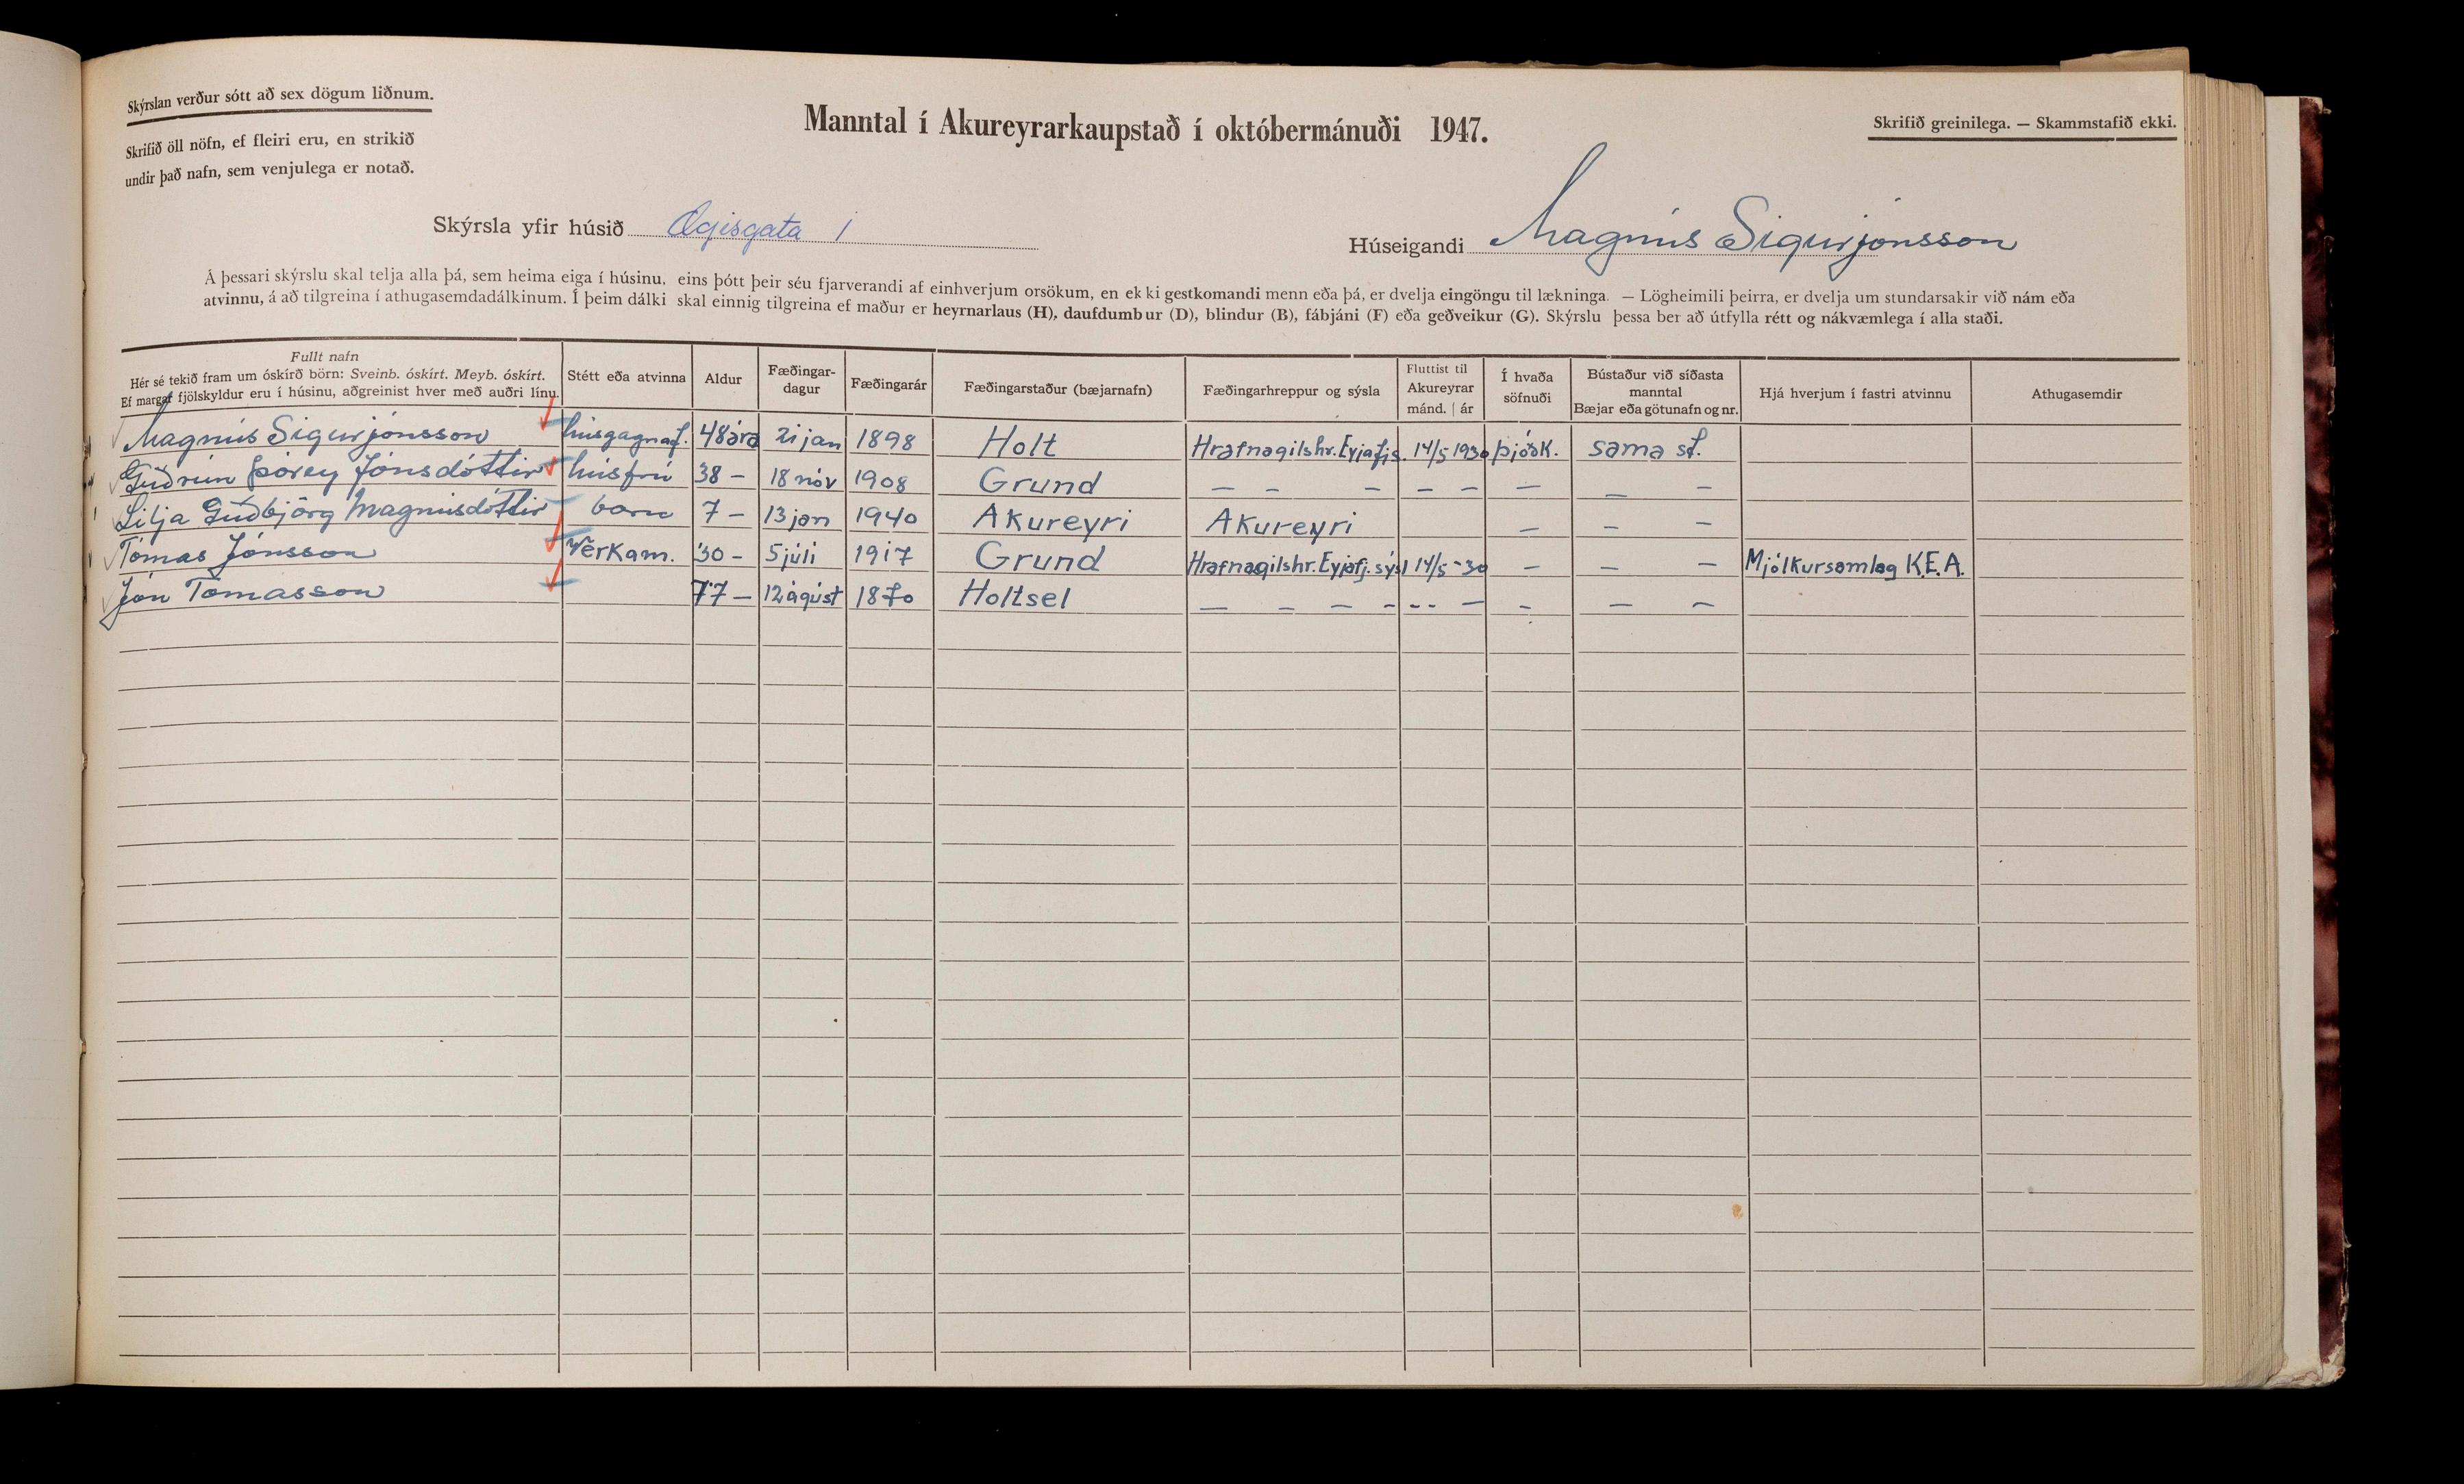 Skýrslan verður sótt að sex dögum liðnum.
Skrifið öll nöfn, ef fleiri eru, en strikið
undir það nafn, sem venjulega er notað.
Manntal í Akureyrarkaupstað í októbermánuði 1947.
Skrifið greinilega. — Skammstafið ekki.
Skýrsla yfir húsið Ægisgata 1
Húseigandi Magnús Sigurjónsson
Á þessari skýrslu skal telja alla þá, sem heima eiga í húsinu, eins þótt þeir séu fjarverandi af einhverjum orsökum, en ekki gestkomandi menn eða þá, er dvelja eingöngu til lækninga. — Lögheimili þeirra, er dvelja um stundarsakir við nám eða
atvinnu, á að tilgreina í athugasemdadálkinum. Í þeim dálki skal einnig tilgreina ef maður er heyrnarlaus (H), daufdumbur (D), blindur (B), fábjáni (F) eða geðveikur (G). Skýrslu þessa ber að útfylla rétt og nákvæmlega í alla staði.
Fullt nafn
Hér sé tekið fram um óskírð börn: Sveinb. óskírt. Meyb. óskírt.
Ef margar fjölskyldur eru í húsinu, aðgreinist hver með auðri línu.
Stétt eða atvinna
Aldur
Fæðingar-
dagur
Fæðingarár
Fæðingarstaður (bæjarnafn)
Fæðingarhreppur og sýsla
Fluttist til
Akureyrar
mánd. | ár
Í hvaða
söfnuði
Bústaður við síðasta
manntal
Bæjar eða götunafn og nr.
Hjá hverjum í fastri atvinnu
Athugasemdir
Magnús Sigurjónsson húsgagnaf. 48 ára 21 jan 1898 Holt Hrafnagilshr. Eyjafjs. 14/5 1930 þjóðk. sama st.
Guðrún Þórey Jónsdóttir húsfrú 38 — 18 nóv 1908 Grund — — — — — — — —
Lilja Guðbjörg Magnúsdóttir barn 7 — 13 jan 1940 Akureyri Akureyri — — —
Tómas Jónsson Verkam. 30 — 5 júlí 1917 Grund Hrafnagilshr. Eyjafj. sýsl 14/5 -30 — — — Mjólkursamlag K.E.A.
Jón Tómasson 77 — 12 ágúst 1870 Holtsel — — — — - - — — — —